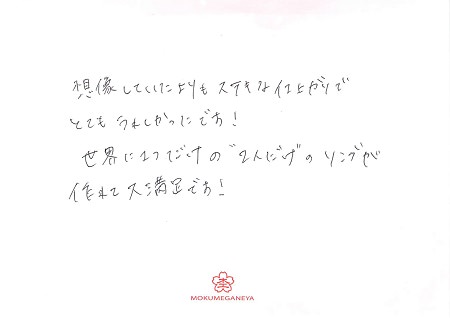 想像していたよりもステキな仕上がりで
とてもうれしかったです！
世界に1つだけの"2人だけ"のリングが
作れて大満足です！
MOKUMEGANEYA